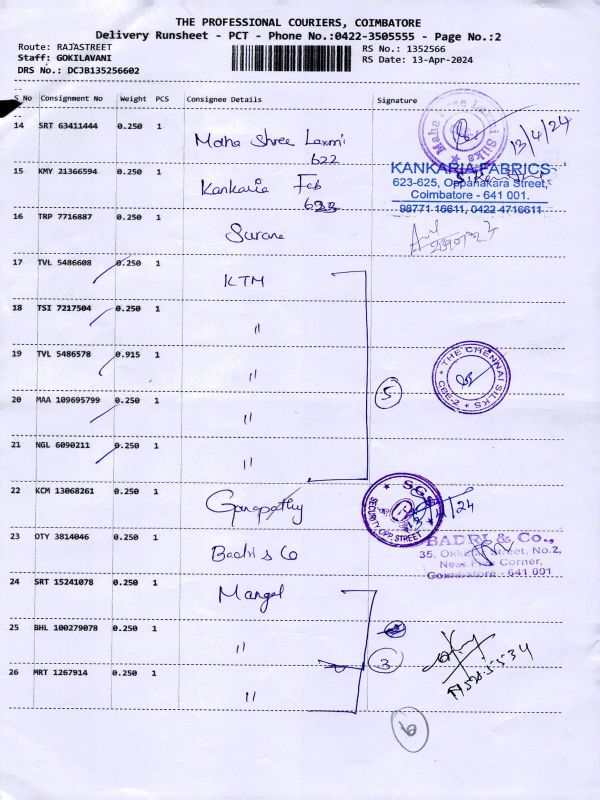 THE PROFESSIONAL COURIERS, COIMBATORE
Delivery Runsheet - PCT - Phone No.:0422-3505555 - Page No.:2
Route: RAJASTREET
Staff: GOKILAVANI
DRS No.: DCJB135256602
RS No.: 1352566
RS Date: 13-Apr-2024
S_No Consignment No Weight PCS Consignee Details Signature
14 SRT 63411444 0.250 1 Maha Shree Laxmi
622
13/4/24
15 KMY 21366594 0.250 1 Kankaria Feb
KANKARIA FABRICS
623-625, Oppanakara Street,
Coimbatore - 641 001.
98771 16611, 0422 4716611
16 TRP 7716887 0.250 1 Surana
17 TVL 5486608 0.250 1 KTM
18 TSI 7217504 0.250 1 "
19 TVL 5486578 0.915 1 "
THE CHENNAI SILKS
CBE-2
5
20 MAA 109695799 0.250 1 "
21 NGL 6090211 0.250 1 "
22 KCM 13068261 0.250 1 Ganapathy
SECURITY OPP. STREET
23 OTY 3814046 0.250 1 Badri & Co
BADRI & Co.,
35, Okkilar Street, No.2,
Coimbatore - 641 001
24 SRT 15241078 0.250 1 Mangal
25 BHL 100279078 0.250 1 "
3
26 MRT 1267914 0.250 1 "